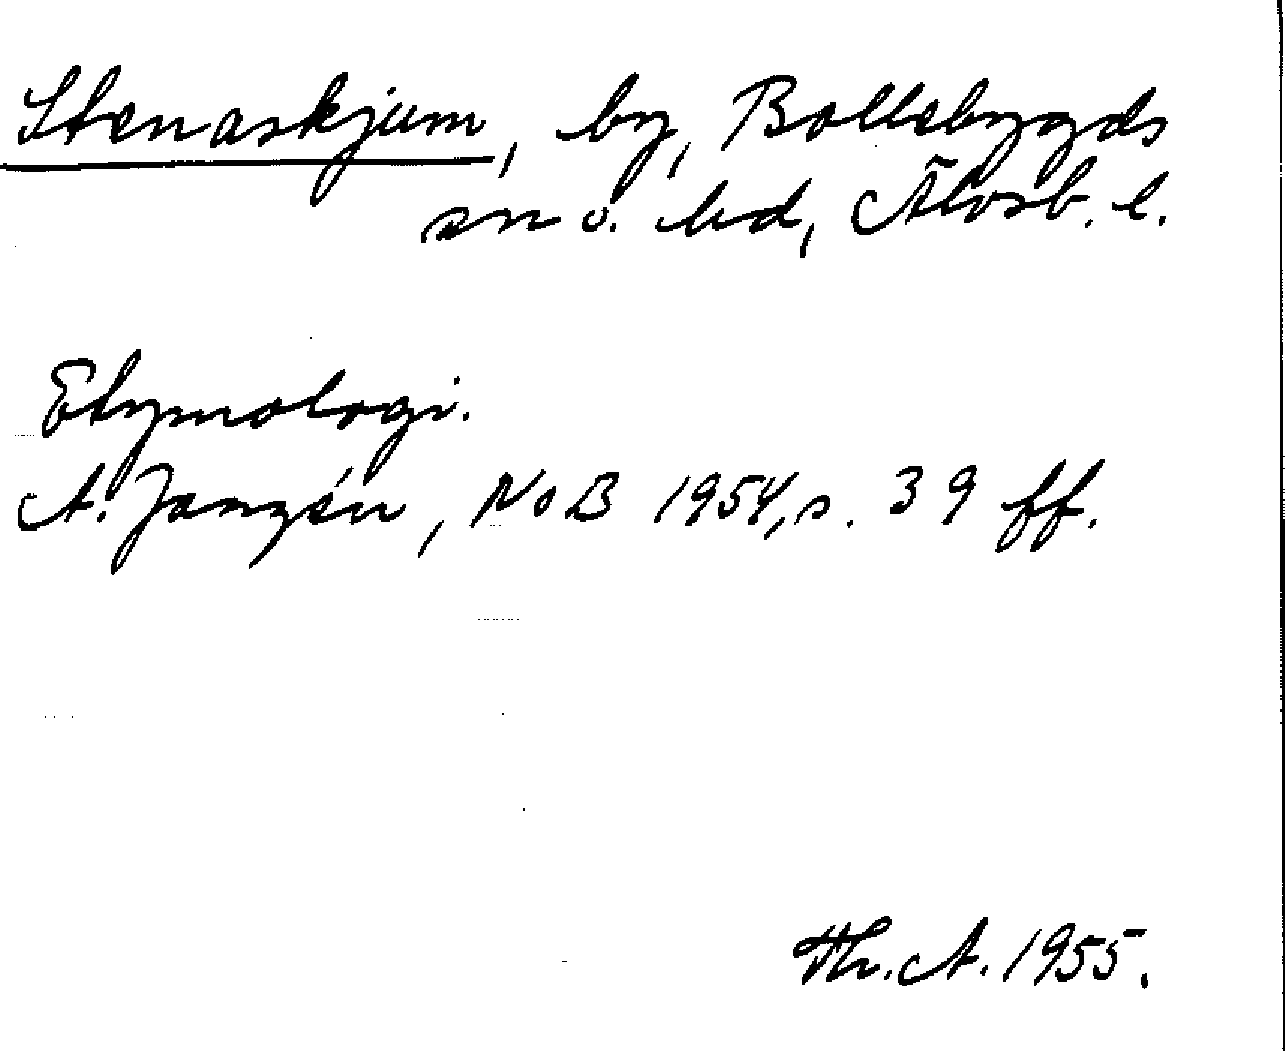 Stenaskjum, by, Bollebygds
sn o. hd, Älvsb. l.
Etymologi.
A. Janzén, NoB 1954, s. 39 ff.
Th. A. 1955.